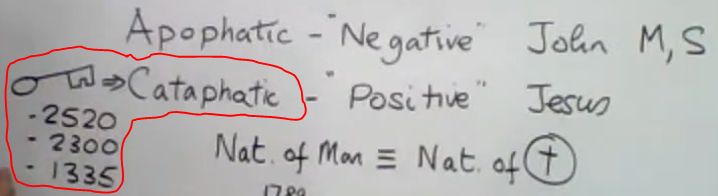 Apophatic - "Negative" John M, S
⇒ Cataphatic - "Positive" Jesus
- 2520
- 2300
- 1335
Nat. of Man ≡ Nat. of †
1789